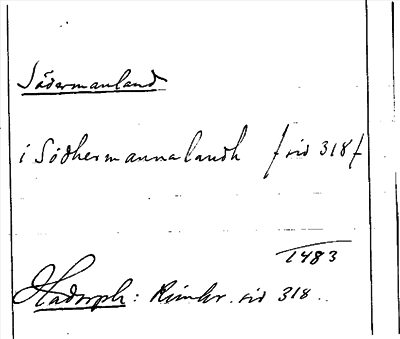 Södermanland
i Södhermannalandh / sid 318 /
1483
Hadorph: Rimkr. sid 318..